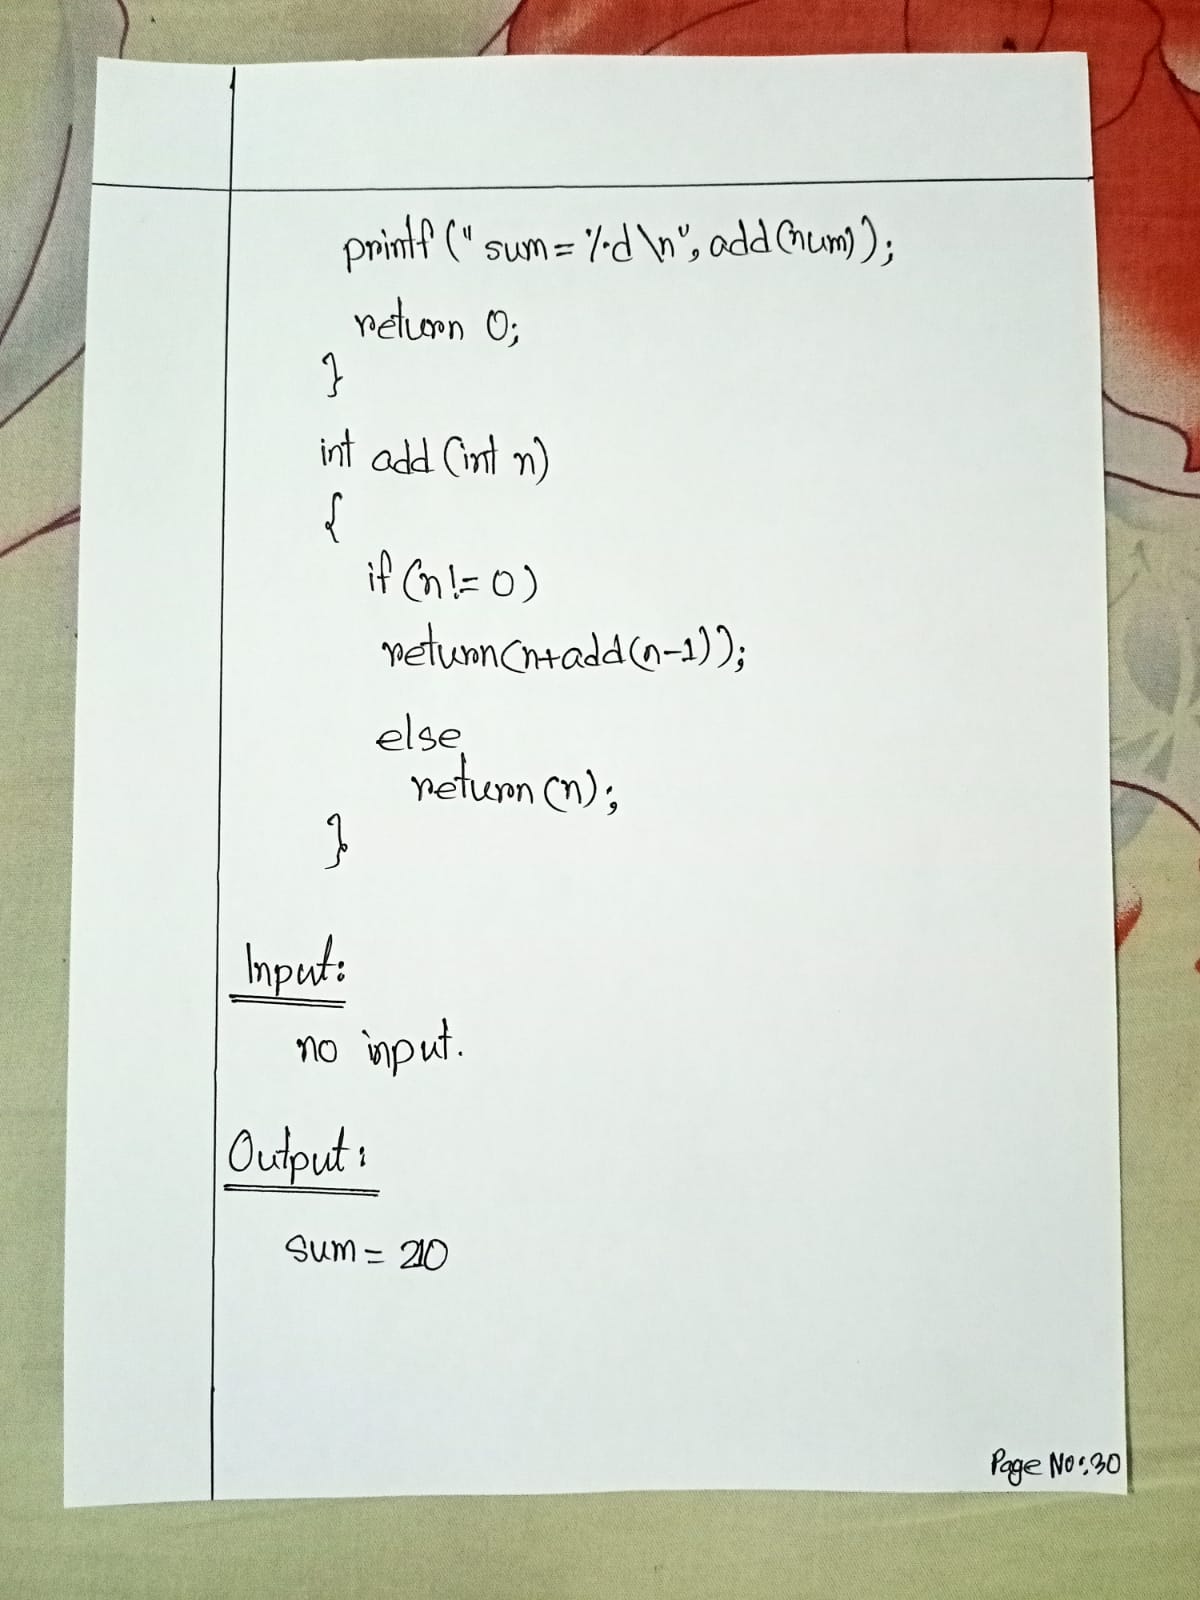 printf ("sum = %d \n", add (num));
return 0;
}
int add (int n)
{
if (n != 0)
return(n+add(n-1));
else
return (n);
}
Input:
no input.
Output:
sum = 210
Page No: 30